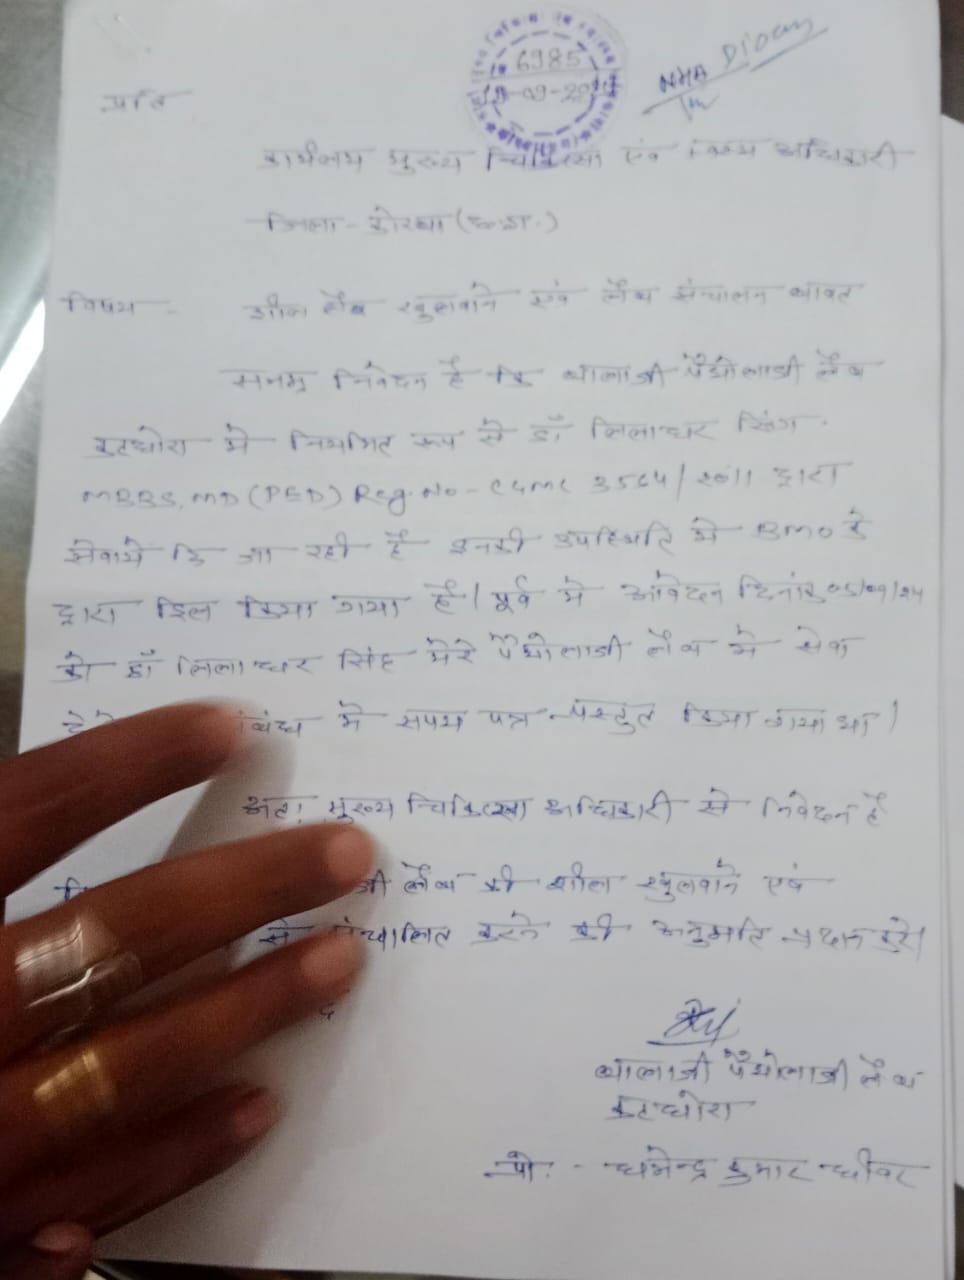 6985
NHA
प्रति
कार्यालय मुख्य चिकित्सा एवं अधिकारी
जिला - कोरबा (छ.ग.)
विषय - शील लैब खुलवाने एवं लैब संचालन बाबत
सनम्र निवेदन है कि बालाजी पैथोलाजी लैब
कटघोरा मे नियमित रूप से डॉ लिलाधर सिंग.
MBBS, MD (PED) Reg. No - CGMC 3564/2011 द्वारा
सेवाये कि जा रही है इनकी उपस्थिति मे BMO के
द्वारा किया गया है। पूर्व मे आवेदन दिनांक 05/09/24
को डॉ लिलाधर सिंह मेरे पैथोलाजी लैब मे सेवा
मे सपथ पत्र प्रस्तुत किया गया था।
अतः मुख्य चिकित्सा अधिकारी से निवेदन है
लैब की शील खुलवाने एवं
से संचालित करने की अनुमति प्रदान करे।
बालाजी पैथोलाजी लैब
कटघोरा
प्रो. - धर्मेन्द्र कुमार धीवर